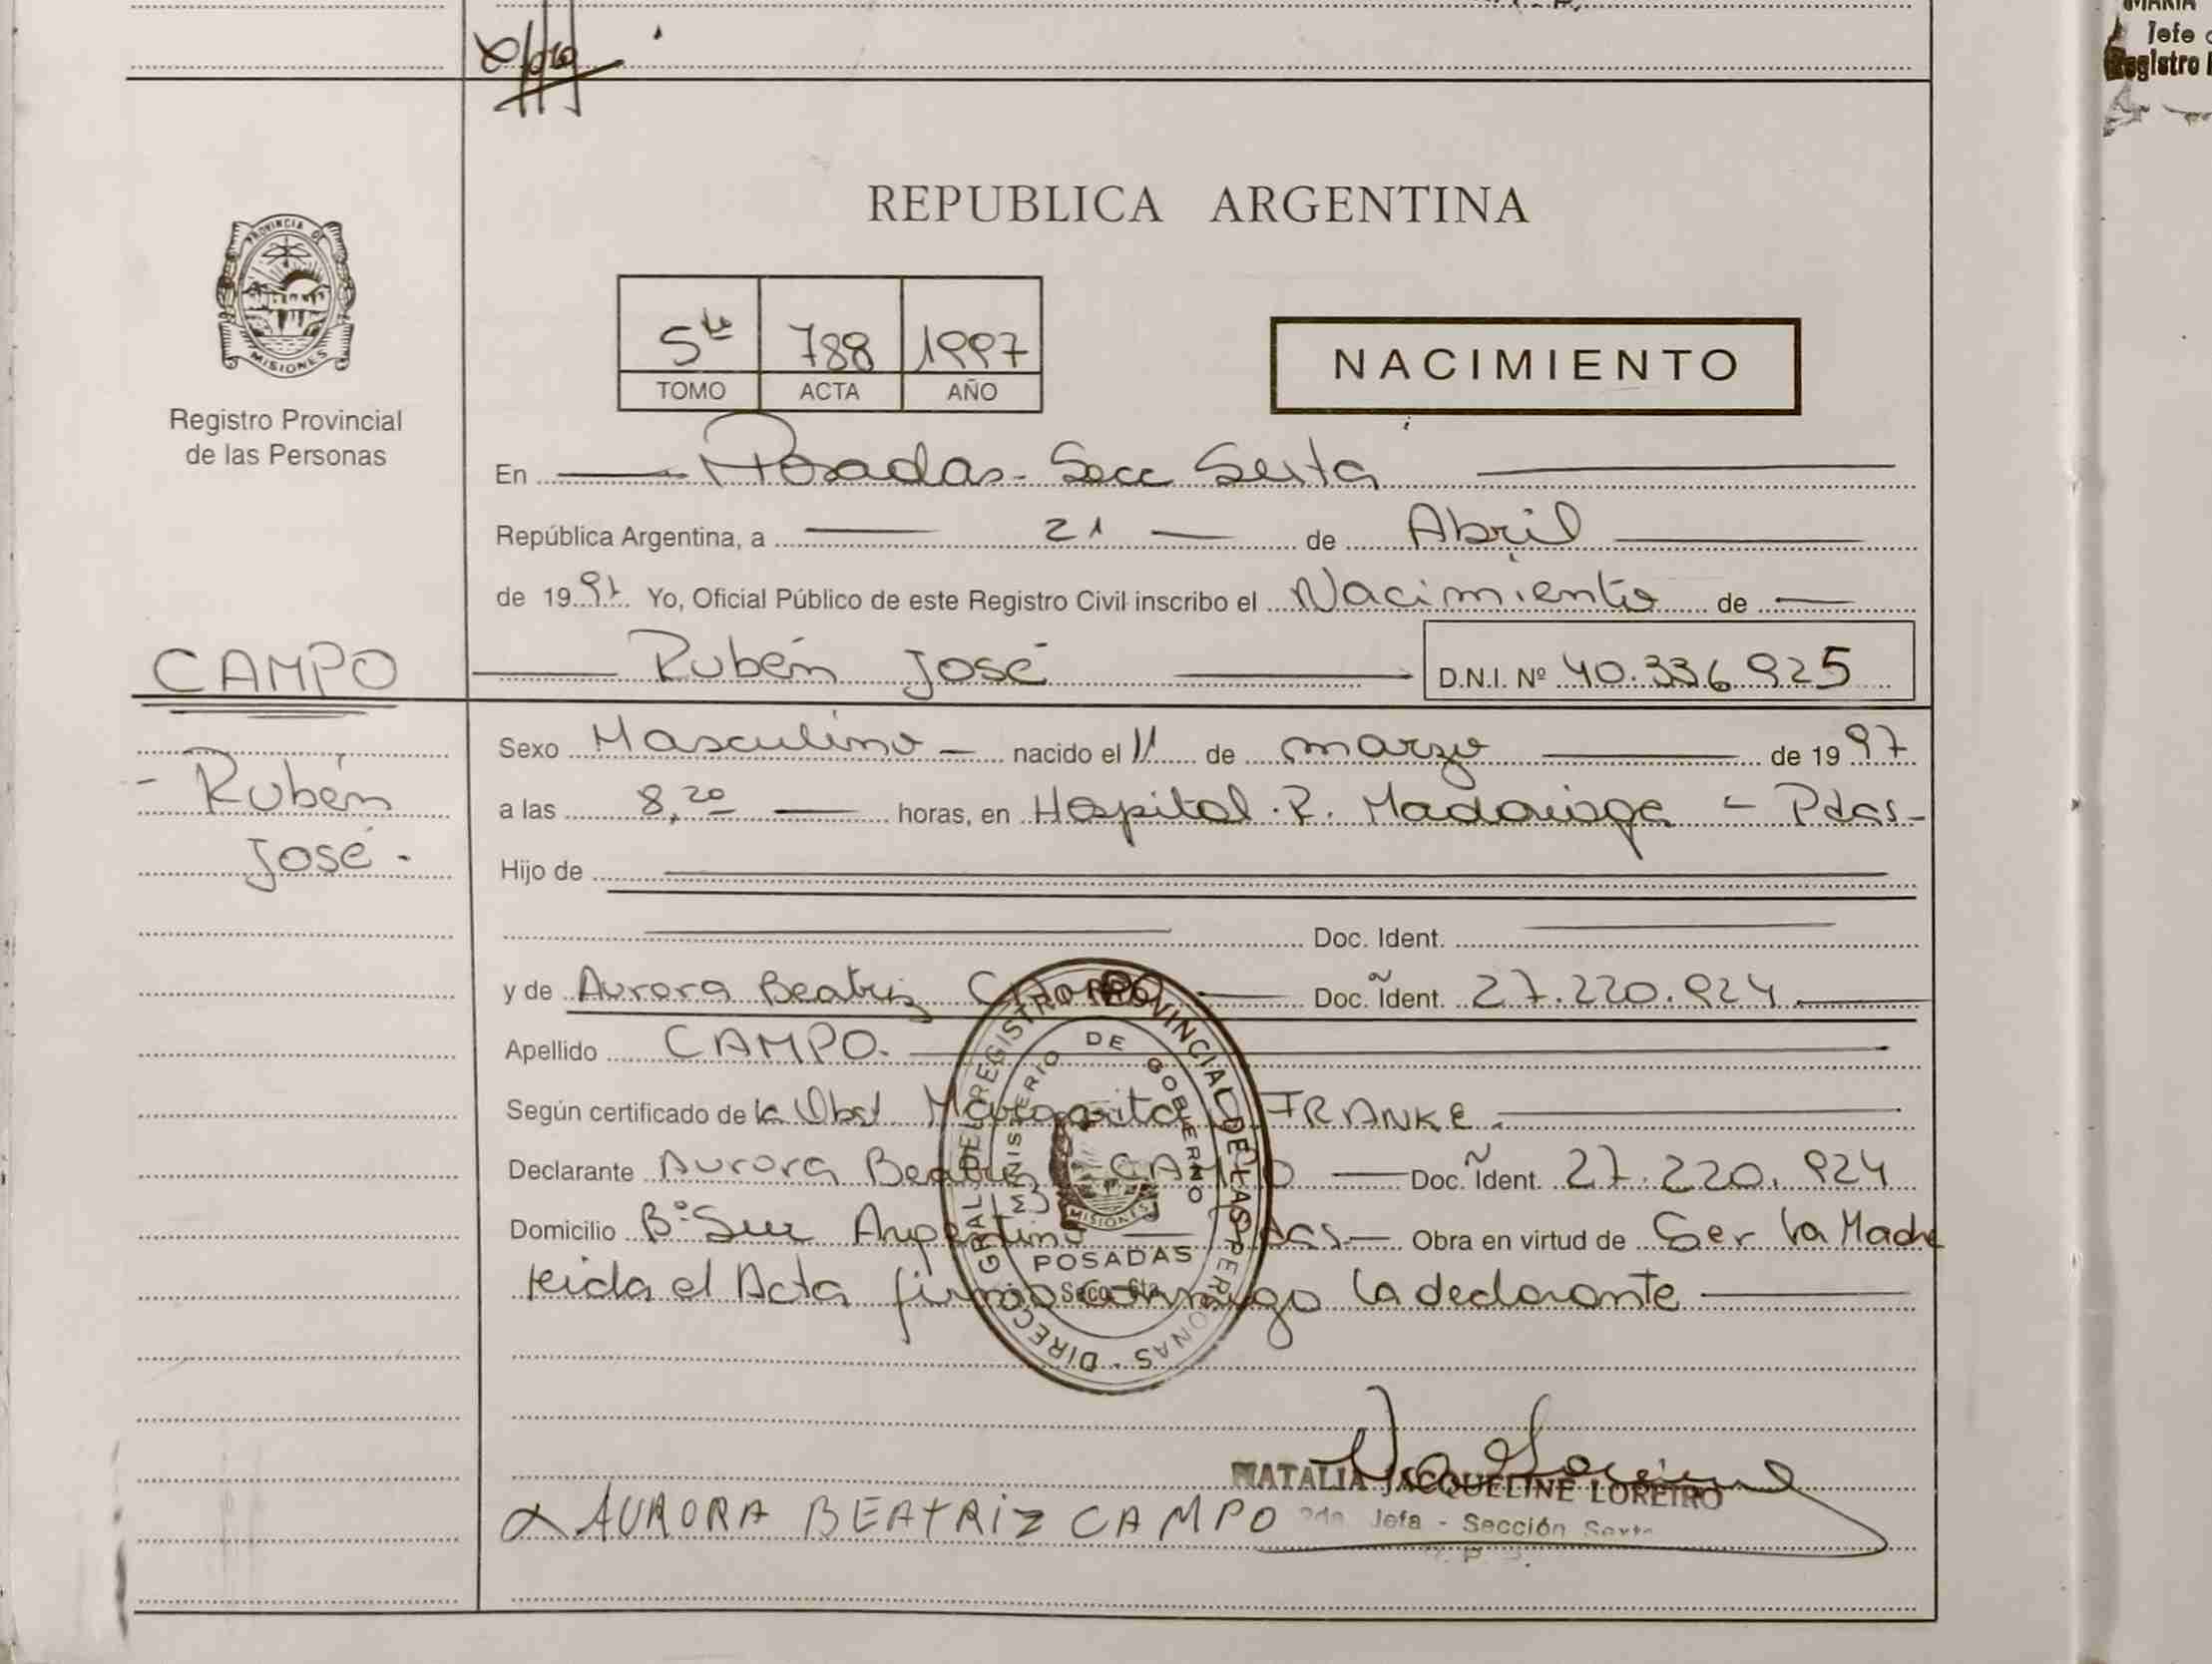 MARIA
Jefe
Registro
REPUBLICA ARGENTINA
PROVINCIA DE
MISIONES
Registro Provincial
de las Personas
5to 788 1997
TOMO ACTA AÑO
NACIMIENTO
En Posadas - Secc Sexta
República Argentina, a 21 de Abril
de 1997. Yo, Oficial Público de este Registro Civil inscribo el Nacimiento de
CAMPO
Rubén José D.N.I. Nº 40.336.925
- Rubén
José -
Sexo Masculino - nacido el 11 de marzo de 1997
a las 8,20 horas, en Hospital R. Madariaga - Pdas-
Hijo de
Doc. Ident.
y de Aurora Beatriz CAMPO Doc. Ident. 27.220.924
Apellido CAMPO.
Según certificado de la Obst. Margarita FRANKE.
Declarante Aurora Beatriz CAMPO Doc. Ident. 27.220.924
Domicilio Bº Sur Argentino Pdas. Obra en virtud de Ser la Madre
leida el Acta firma conmigo la declarante
DIRECC. GRAL DEL REGISTRO PROVINCIAL DE LAS PERSONAS
MINISTERIO DE GOBIERNO
MISIONES
POSADAS
Secc. 6ta
NATALIA JACQUELINE LOREIRO
2da. Jefa - Sección Sexta
x AURORA BEATRIZ CAMPO